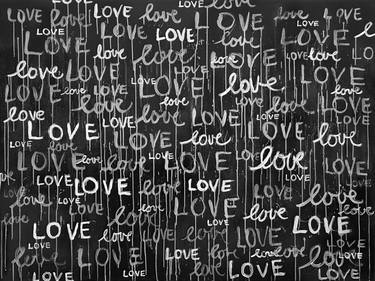 LOVE LOVE love LOVE LOVE LOVE
LOVE LOVE love LOVE LOVE LOVE
LOVE LOVE love LOVE love LOVE
love LOVE love LOVE love LOVE
LOVE love LOVE love LOVE love LOVE
LOVE love LOVE love LOVE LOVE
LOVE LOVE love LOVE love LOVE
LOVE love LOVE LOVE love LOVE
LOVE LOVE love LOVE LOVE love
love LOVE love LOVE love LOVE
LOVE love LOVE love LOVE LOVE
LOVE LOVE love LOVE love love LOVE
LOVE LOVE LOVE love LOVE LOVE